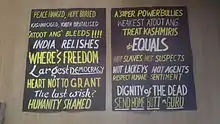 PEACE HANGED, HOPE BURIED
KASHMIR CAGED, YOUTH BRUTALISED
ATOOT ANG' BLEEDS!!!!
INDIA RELISHES
WHERE'S FREEDOM
Largest DEMOCRACY
HEART NOT TO GRANT
The last wish
HUMANITY SHAMED
A SUPER POWER BULLIES
WEAKEST ATOOT ANG
TREAT KASHMIRIS
AS EQUALS
NOT SLAVES NOT SUSPECTS
NOT LACKEYS NOT AGENTS
RESPECT HUMANE SENTIMENT
DIGNITY OF THE DEAD
SEND HOME BUTT N GURU